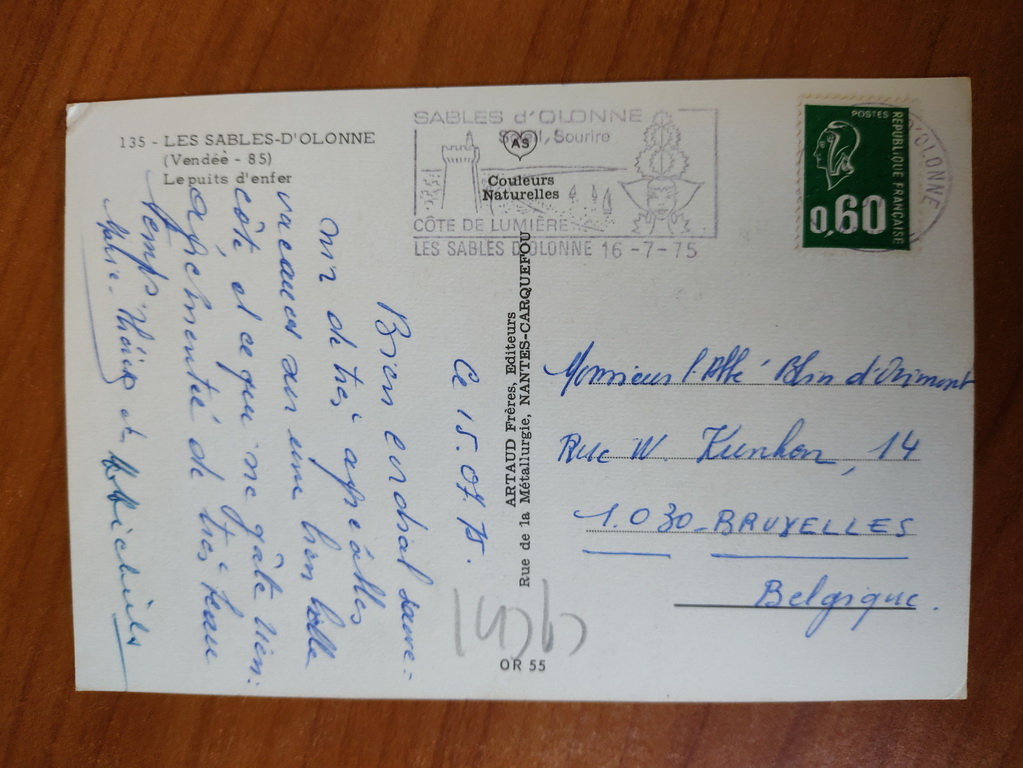 135 - LES SABLES-D'OLONNE
(Vendée - 85)
Le puits d'enfer
SABLES d'OLONNE
Soleil, Sourire
AS
Couleurs
Naturelles
CÔTE DE LUMIÈRE
LES SABLES D'OLONNE 16-7-75
POSTES
REPUBLIQUE FRANÇAISE
0,60
D'OLONNE
ARTAUD Frères, Editeurs
Rue de la Métallurgie, NANTES-CARQUEFOU
OR 55
Ce 15.07.75.
Bien cordial souve-
nir de très agréables
vacances sur une bien belle
côte, et ce qui ne gâte rien:
agrémenté de très beau
temps.
Marie-Thérèse et
Monsieur l'Abbé Blin d'Orimont
Rue W. Kunhon, 14
1.030-BRUXELLES
Belgique.